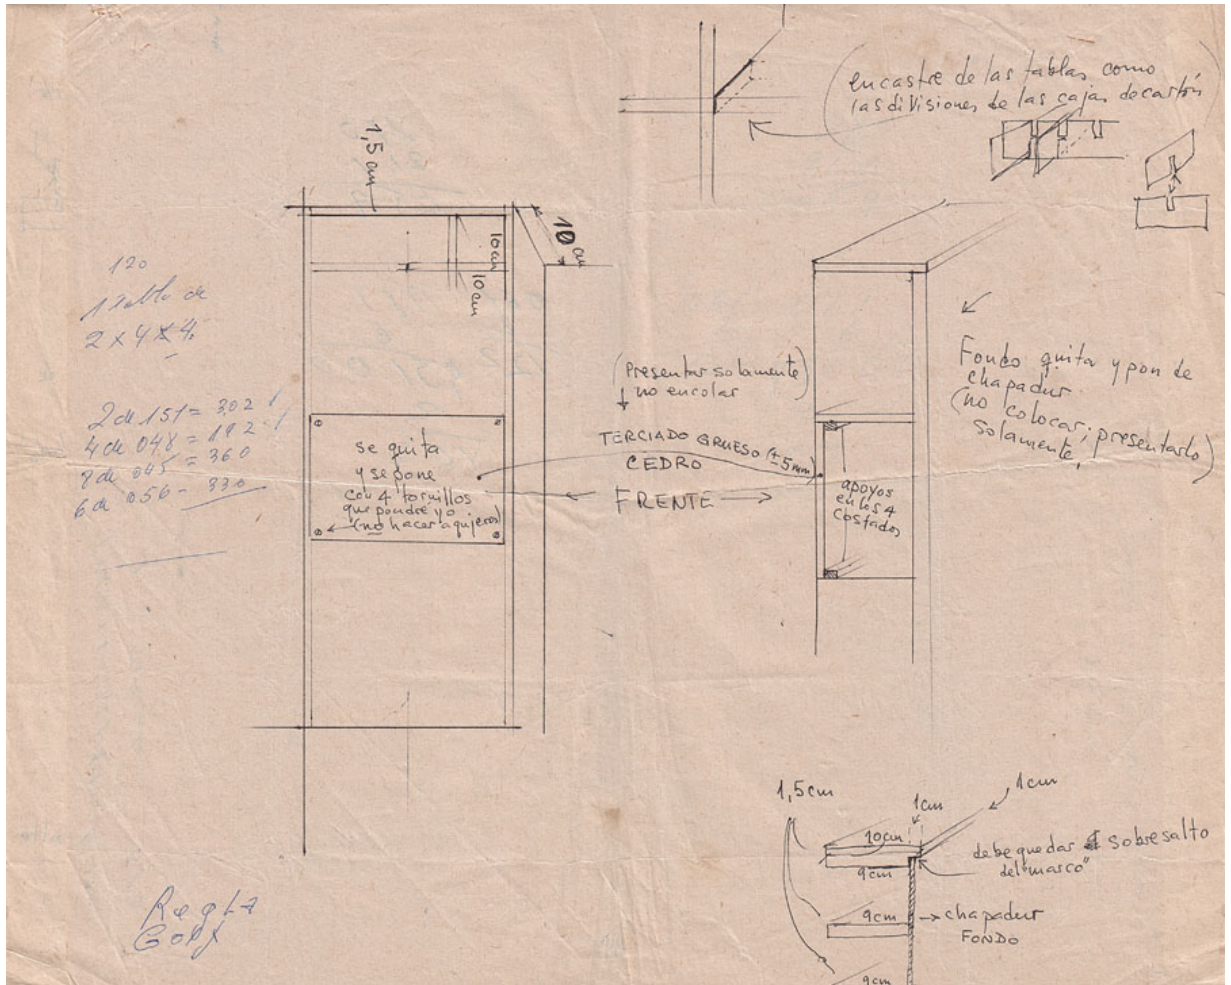 encastre de las tablas como
las divisiones de las cajas de cartón
1,5 cm
10 cm
10 cm
10 cm
120
1 tabla de
2 x 4 x 4
2 de 151 = 302
4 de 048 = 192
8 de 045 = 360
6 de 056 - 330
se quita
y se pone
con 4 tornillos
que pondré yo
(no hacer agujeros)
(Presentar solamente)
no encolar
TERCIADO GRUESO (± 5mm)
CEDRO
FRENTE
apoyos
en los 4
costados
Fondo quita y pon de
chapadur
(no colocar; presentarlo)
solamente,
1,5cm
1cm
1cm
10cm
9cm
debe quedar sobresalto
del "marco"
9cm
chapadur
FONDO
9cm